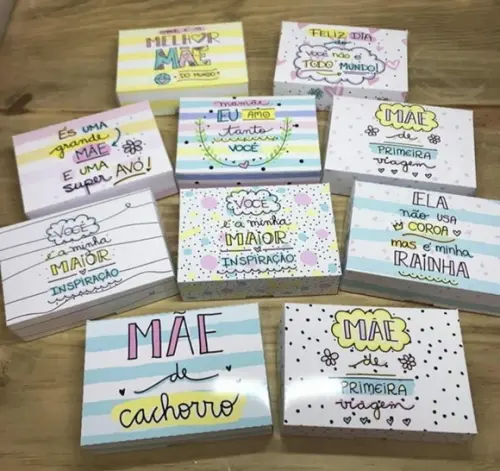 ÉS A
MELHOR
MÃE
DO MUNDO
FELIZ DIA
de
VOCÊ NÃO É
TODO MUNDO!
ÉS UMA
grande
MÃE
E UMA
super AVÓ!
mamãe
EU AMO
tanto
VOCÊ
MÃE
de
PRIMEIRA
viagem
VOCÊ
é a minha
MAIOR
INSPIRAÇÃO
VOCÊ
é a minha
MAIOR
INSPIRAÇÃO
ELA
não USA
COROA
mas é minha
RAINHA
MÃE
de
cachorro
MÃE
de
PRIMEIRA
viagem